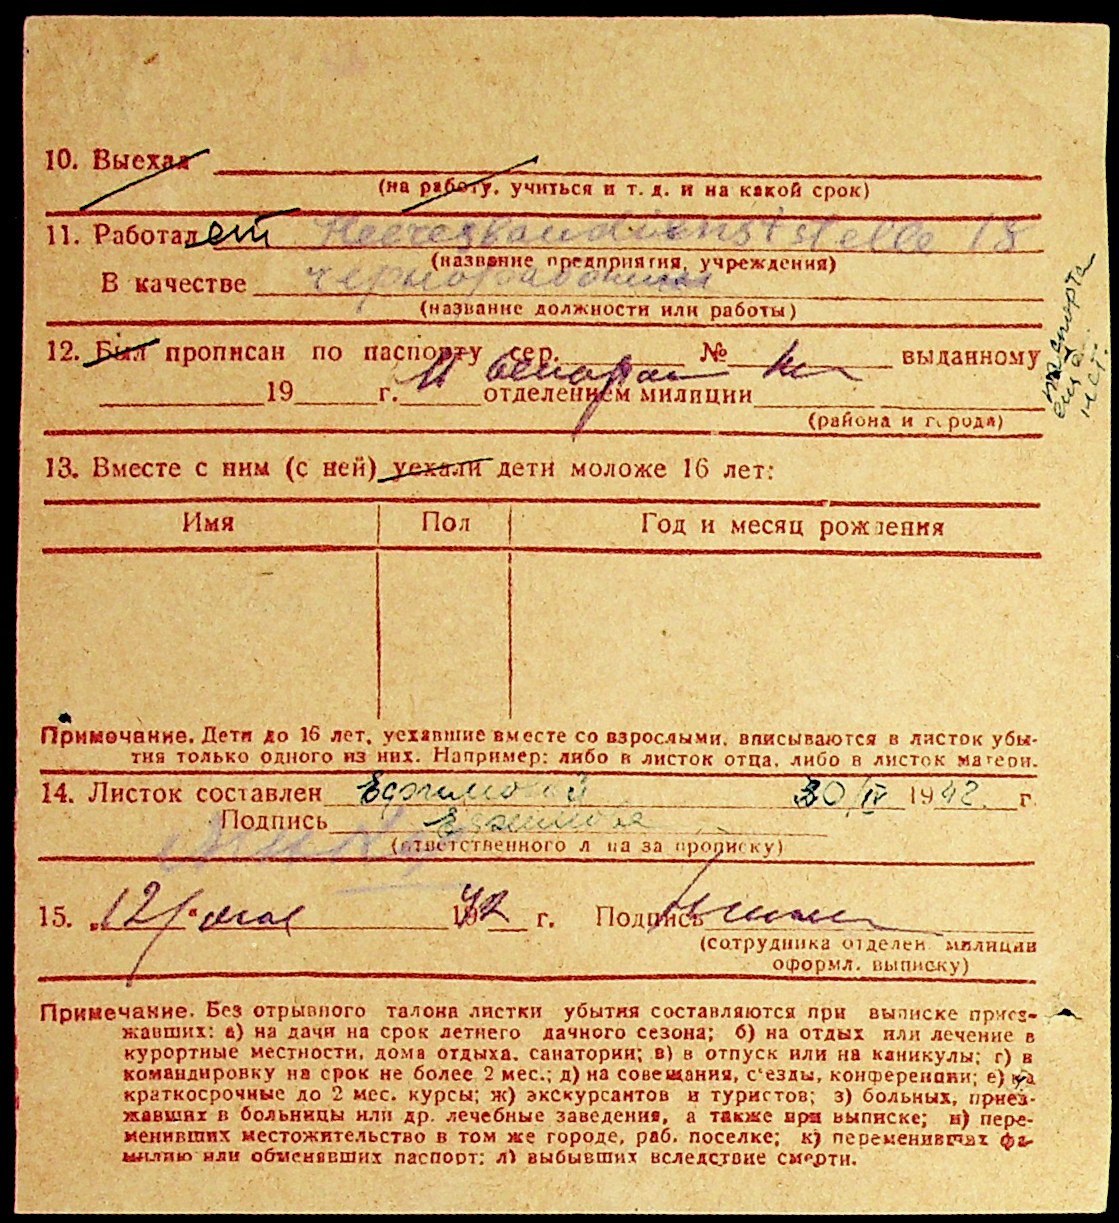 10. Выехал
(на работу, учиться и т. д. и на какой срок)
11. Работает Heeresbaudienststelle 18
(название предприятия, учреждения)
В качестве чернорабочий
(название должности или работы)
12. Был прописан по паспорту сер. № выданному
19 г. отделением милиции
(района и города)
паспорта
еще
нет.
13. Вместе с ним (с ней) уехали дети моложе 16 лет:
Имя Пол Год и месяц рождения
Примечание. Дети до 16 лет, уехавшие вместе со взрослыми, вписываются в листок убы-
тия только одного из них. Например: либо в листок отца, либо в листок матери.
14. Листок составлен Ефимовой 30/IV 1942. г.
Подпись Ефимова
(ответственного лица за прописку)
15. „12“ мая 1942 г. Подпись
(сотрудника отделен. милиции
оформл. выписку)
Примечание. Без отрывного талона листки убытия составляются при выписке приез-
жавших: а) на дачи на срок летнего дачного сезона; б) на отдых или лечение в
курортные местности, дома отдыха, санатории; в) в отпуск или на каникулы; г) в
командировку на срок не более 2 мес.; д) на совещания, с'езды, конференции; е) на
краткосрочные до 2 мес. курсы; ж) экскурсантов и туристов; з) больных, приез-
жавших в больницы или др. лечебные заведения, а также при выписке; и) пере-
менивших местожительство в том же городе, раб. поселке; к) переменивших фа-
милию или обменявших паспорт; л) выбывших вследствие смерти.